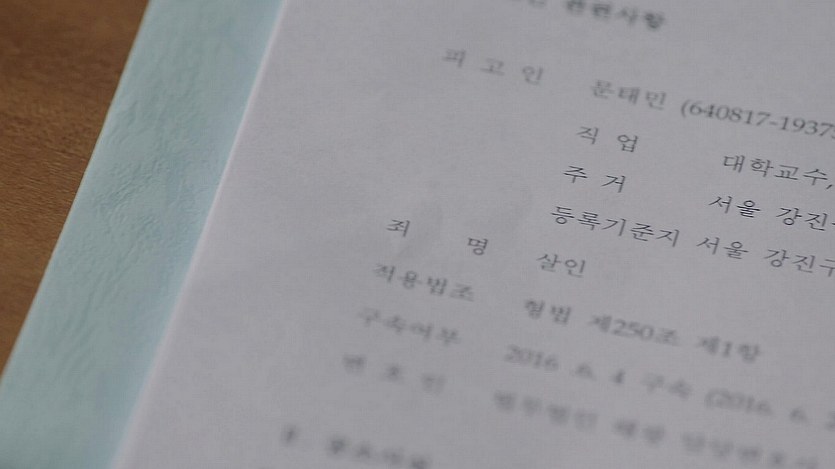 관련사항
피 고 인 문태민 (640817-1937
직 업 대학교수,
주 거 서울 강진
등록기준지 서울 강진구
죄 명 살인
적용법조 형법 제250조 제1항
구속여부 2016. 6. 4 구속 (2016. 6. 2
변 호 인 법무법인 담당변호사